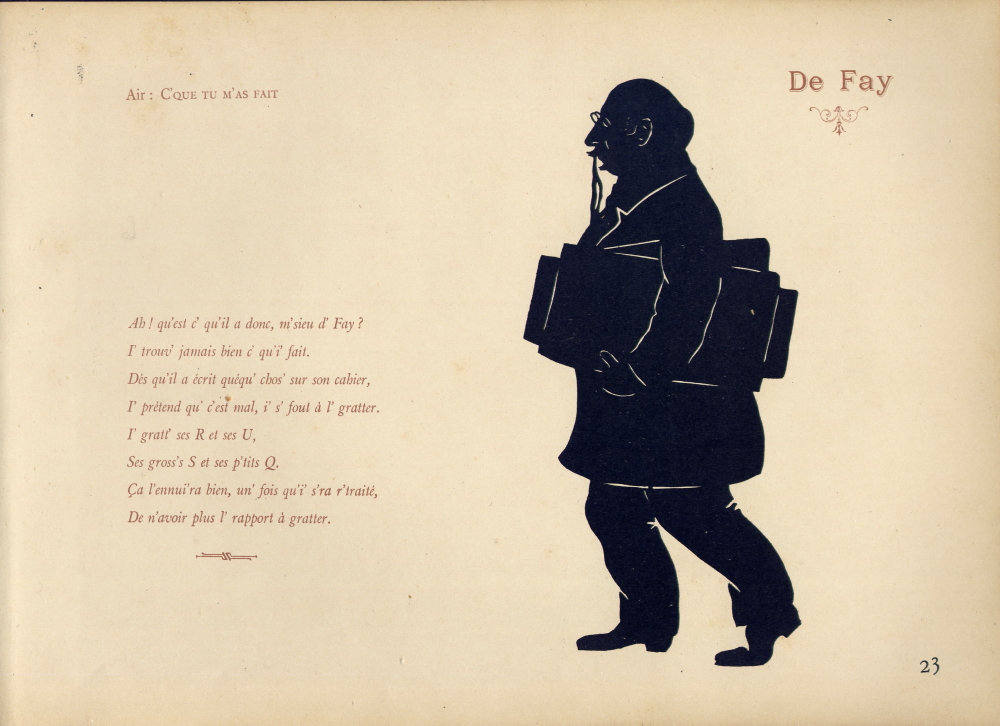 Air : C'QUE TU M'AS FAIT
De Fay
Ah ! qu'est c' qu'il a donc, m'sieu d' Fay ?
I' trouv' jamais bien c' qu'i' fait.
Dès qu'il a écrit quéqu' chos' sur son cahier,
I' prétend qu' c'est mal, i' s' fout à l' gratter.
I' gratt' ses R et ses U,
Ses gross's S et ses p'tits Q.
Ça l'ennui'ra bien, un' fois qu'i' s'ra r'traité,
De n'avoir plus l' rapport à gratter.
23